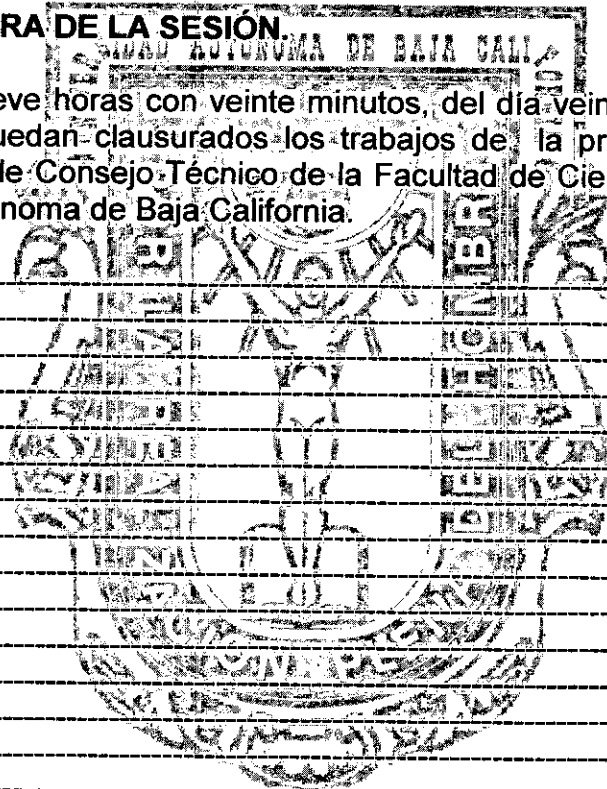 RA DE LA SESIÓN.
SIDAD AUTONOMA DE BAJA CALI
eve horas con veinte minutos, del día vein
uedan clausurados los trabajos de la pr
de Consejo Técnico de la Facultad de Cie
noma de Baja California.
DEL HOMBR